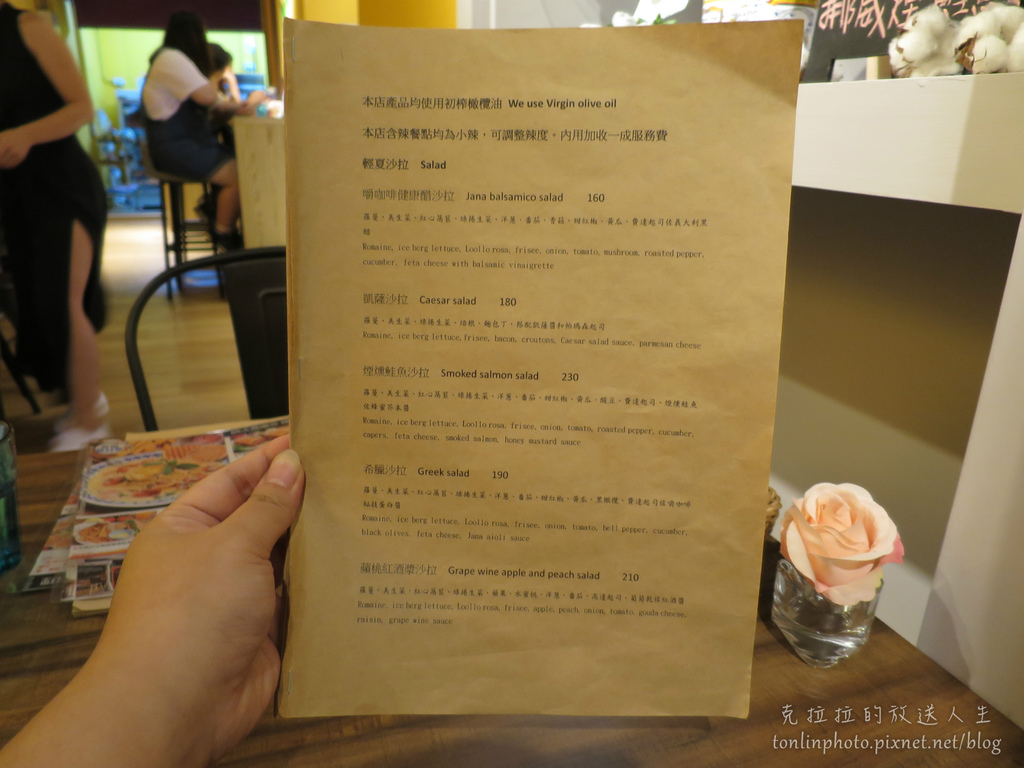 本店產品均使用初榨橄欖油 We use Virgin olive oil
本店含辣餐點均為小辣，可調整辣度。內用加收一成服務費
輕夏沙拉 Salad
嚼咖啡健康醋沙拉 Jana balsamico salad 160
蘿蔓、美生菜、紅心萵苣、綠捲生菜、洋蔥、番茄、香菇、甜紅椒、黃瓜、費達起司佐義大利黑
醋
Romaine, ice berg lettuce, Loollo rosa, frisee, onion, tomato, mushroom, roasted pepper,
cucumber, feta cheese with balsamic vinaigrette
凱薩沙拉 Caesar salad 180
蘿蔓、美生菜、綠捲生菜、培根、麵包丁，搭配凱薩醬和帕瑪森起司
Romaine, ice berg lettuce, frisee, bacon, croutons, Caesar salad sauce, parmesan cheese
煙燻鮭魚沙拉 Smoked salmon salad 230
蘿蔓、美生菜、紅心萵苣、綠捲生菜、洋蔥、番茄、甜紅椒、黃瓜、酸豆、費達起司、煙燻鮭魚
佐蜂蜜芥末醬
Romaine, ice berg lettuce, Loollo rosa, frisee, onion, tomato, roasted pepper, cucumber,
capers, feta cheese, smoked salmon, honey mustard sauce
希臘沙拉 Greek salad 190
蘿蔓、美生菜、紅心萵苣、綠捲生菜、洋蔥、番茄、甜紅椒、黃瓜、黑橄欖、費達起司佐嚼咖啡
秘技蛋白醬
Romaine, ice berg lettuce, Loollo rosa, frisee, onion, tomato, bell pepper, cucumber,
black olives, feta cheese, Jana aioli sauce
蘋桃紅酒漿沙拉 Grape wine apple and peach salad 210
蘿蔓、美生菜、紅心萵苣、綠捲生菜、蘋果、水蜜桃、洋蔥、番茄、高達起司、葡萄乾佐紅酒醬
Romaine, ice berg lettuce, Loollo rosa, frisee, apple, peach, onion, tomato, gouda cheese,
raisin, grape wine sauce
克拉拉的放送人生
tonlinphoto.pixnet.net/blog